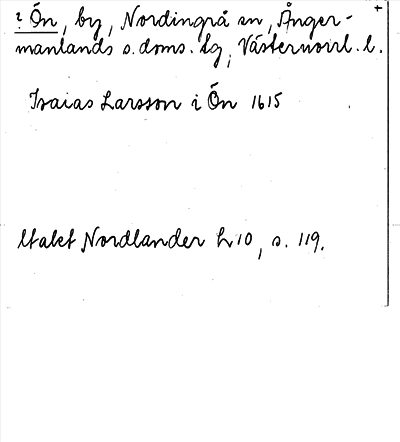 ? Ön, by, Nordingrå sn, Ånger- +
manlands s. doms. tg, Västernorrl. l.
Isaias Larsson i Ön 1615
Utalet Nordlander h 10, s. 119.